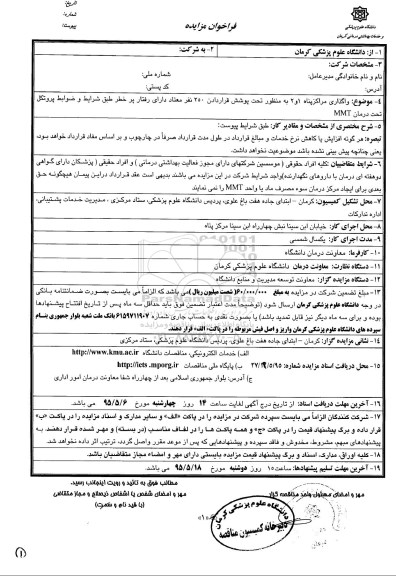 تاریخ:
شماره:
پیوست:
فراخوان مزایده
دانشگاه علوم پزشکی
و خدمات بهداشتی درمانی کرمان
۱- از: دانشگاه علوم پزشکی کرمان
۲- به شرکت:
۳- مشخصات شرکت:
نام و نام خانوادگی مدیرعامل:
شماره ملی:
آدرس:
کد پستی:
۴- موضوع: واگذاری مراکزپناه ۱و۲ به منظور تحت پوشش قراردادن ۲۵۰ نفر معتاد دارای رفتار پر خطر طبق شرایط و ضوابط پروتکل
تحت درمان MMT
۵- شرح مختصری از مشخصات و مقادیر کار: طبق شرایط پیوست:
تبصره: هر گونه افزایش یا کاهش نرخ خدمات و مبالغ قرارداد در طول مدت قرارداد صرفاً در چارچوب و بر اساس مفاد قرارداد خواهد بود.
یعنی چنانچه پیش بینی نشده باشد موضوعیت نخواهد داشت.
۶- شرایط متقاضیان: کلیه افراد حقوقی ( موسسین شرکتهای دارای مجوز فعالیت بهداشتی درمانی ) و افراد حقیقی ( پزشکان دارای گواهی
دوهفته ای درمان با داروهای نگهدارنده)واجد شرایط شرکت در این مزایده می باشند بدیهی است عقد قرارداد دراین پیمان هیچگونه حق
بعدی برای ایجاد مرکز درمان سوء مصرف ماد یا واحد MMT را نمی نمایند
۷- محل تشکیل کمیسیون: کرمان – ابتدای جاده هفت باغ علوی، پردیس دانشگاه علوم پزشکی، ستاد مرکزی ، مدیریت خدمات پشتیبانی،
اداره تدارکات
۸- محل اجرای کار: خیابان ابن سینا نبش چهارراه ابن سینا مرکز پناه
۹- مدت اجرای کار: یکسال شمسی
۱۰- کارفرما: معاونت درمان دانشگاه
۱۱- دستگاه نظارت: معاونت درمان دانشگاه علوم پزشکی کرمان
۱۲- دستگاه مزایده گزار: معاونت توسعه مدیریت و منابع دانشگاه
۱۳- مبلغ تضمین شرکت در مزایده به مبلغ ۶۰/۰۰۰/۰۰۰ (شصت میلیون ریال)می باشد که الزاماً می بایست بصورت ضمانتنامه بانکی
در وجه دانشگاه علوم پزشکی کرمان ارسال شود (توضیحاً مدت اعتبار تضمین فوق باید حداقل سه ماه پس از تاریخ افتتاح پیشنهادها
بوده و برای سه ماه دیگر نیز قابل تمدید باشد) یا بصورت نقدی به حساب جاری شماره ۶۱۵۹۷۱۱۹۰۷ بانک ملت شعبه بلوار جمهوری بنام
سپرده های دانشگاه علوم پزشکی کرمان واریز و اصل فیش مربوطه را در پاکت» الف« قرار دهند.
۱۴- نشانی مزایده گزار: کرمان – ابتدای جاده هفت باغ علوی، پردیس دانشگاه علوم پزشکی، ستاد مرکزی
۱۵- محل دریافت اسناد مزایده شماره:
الف) خدمات الکترونیکی، مناقصات دانشگاه http://www.kmu.ac.ir
ب) پایگاه ملی مناقصات http://iets.mporg.ir
ج) آدرس: بلوار جمهوری اسلامی بعد از چهارراه شفا معاونت درمان امور اداری
۱۶- آخرین مهلت دریافت اسناد: از تاریخ درج آگهی لغایت ساعت ۱۴ روز چهارشنبه مورخ ۹۵/۵/۶ می باشد.
۱۷- شرکت کنندگان الزاماً می بایست سپرده شرکت در مزایده را در پاکت «الف» و سایر مدارک و اسناد مزایده را در پاکت «ب»
قرار داده و برگ پیشنهاد قیمت را در پاکت «ج» و همه پاکت ها را در لفاف مناسب (در بسته) و مهر شده قرار دهند. به
پیشنهادهای مبهم، مشروط، مخدوش و فاقد سپرده و پیشنهادهایی که پس از موعد مقرر واصل گردد، ترتیب اثر داده نخواهد شد.
۱۸- کلیه اوراق، مدارک، اسناد و برگ پیشنهاد قیمت مزایده بایستی دارای مهر و امضاء مجاز متقاضیان باشد.
۱۹- آخرین مهلت تسلیم پیشنهادها: ساعت۱۵ روز دوشنبه مورخ ۹۵/۵/۱۸ می باشد.
مطالب فوق به تائید و رویت اینجانب رسید.
مهر و امضای مسئول واحد مناقصه گزار
مهر و امضای شخص یا اشخاص ذیصلاح و مجاز متقاضی
(با قید نام و سمت)
دانشگاه علوم پزشکی کرمان
دبیرخانه کمیسیون مناقصه
«۱»